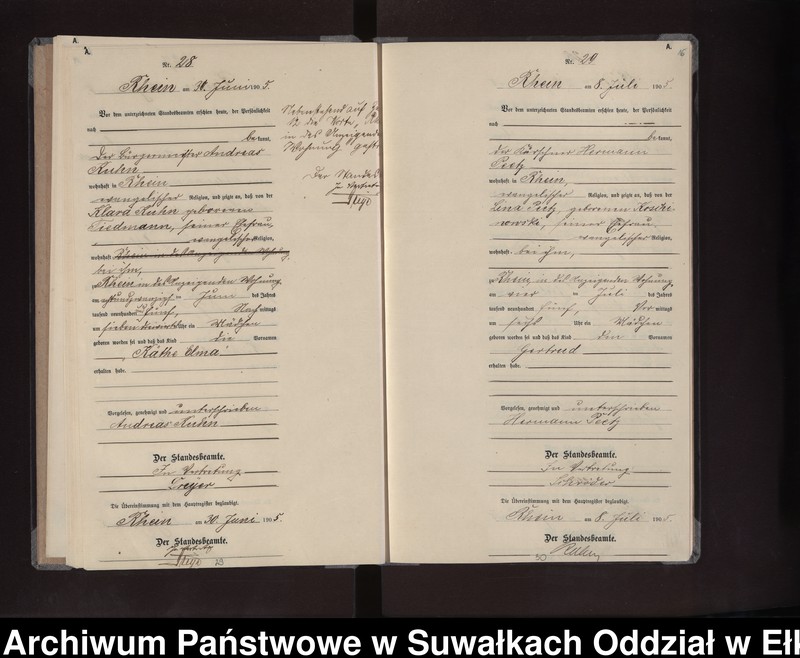 A.
Nr. 28
Rhein am 30. Juni 1905.
Vor dem unterzeichneten Standesbeamten erschien heute, der Persönlichkeit
nach
bekannt,
Der Bürgermeister Andreas
Kuhn,
wohnhaft in Rhein
evangelischer Religion, und zeigte an, daß von der
Klara Kuhn geborenen
Tiedmann, seiner Ehefrau,
evangelischer Religion,
wohnhaft
bei ihm,
zu Rhein in des Anzeigenden Wohnung
am achtundzwanzigsten Juni des Jahres
tausend neunhundert fünf, Nachmittags
um sieben Uhr ein Mädchen
geboren worden sei und daß das Kind die Vornamen
Käthe Elma
erhalten habe.
Vorgelesen, genehmigt und unterschrieben
Andreas Kuhn
Der Standesbeamte.
In Vertretung
Dreyer
Die Übereinstimmung mit dem Hauptregister beglaubigt.
Rhein am 30. Juni 1905.
Der Standesbeamte.
Nebenstehend auf
12 die Worte
in des Anzeigenden
Wohnung
Der Standes
Nr. 29
A.
Rhein am 8. Juli 1905.
Vor dem unterzeichneten Standesbeamten erschien heute, der Persönlichkeit
nach
bekannt,
der Kürschner Hermann
Peetz
wohnhaft in Rhein,
evangelischer Religion, und zeigte an, daß von der
Lina Peetz, geborenen Koschi
nowski, seiner Ehefrau,
evangelischer Religion,
wohnhaft bei ihm,
zu Rhein in des Anzeigenden Wohnung
am vier ten Juli des Jahres
tausend neunhundert fünf, Vormittags
um sechs Uhr ein Mädchen
geboren worden sei und daß das Kind den Vornamen
Gertrud
erhalten habe.
Vorgelesen, genehmigt und unterschrieben
Hermann Peetz
Der Standesbeamte.
In Vertretung
Schröder
Die Übereinstimmung mit dem Hauptregister beglaubigt.
Rhein am 8. Juli 1905.
Der Standesbeamte.
Archiwum Państwowe w Suwałkach Oddział w Ełk